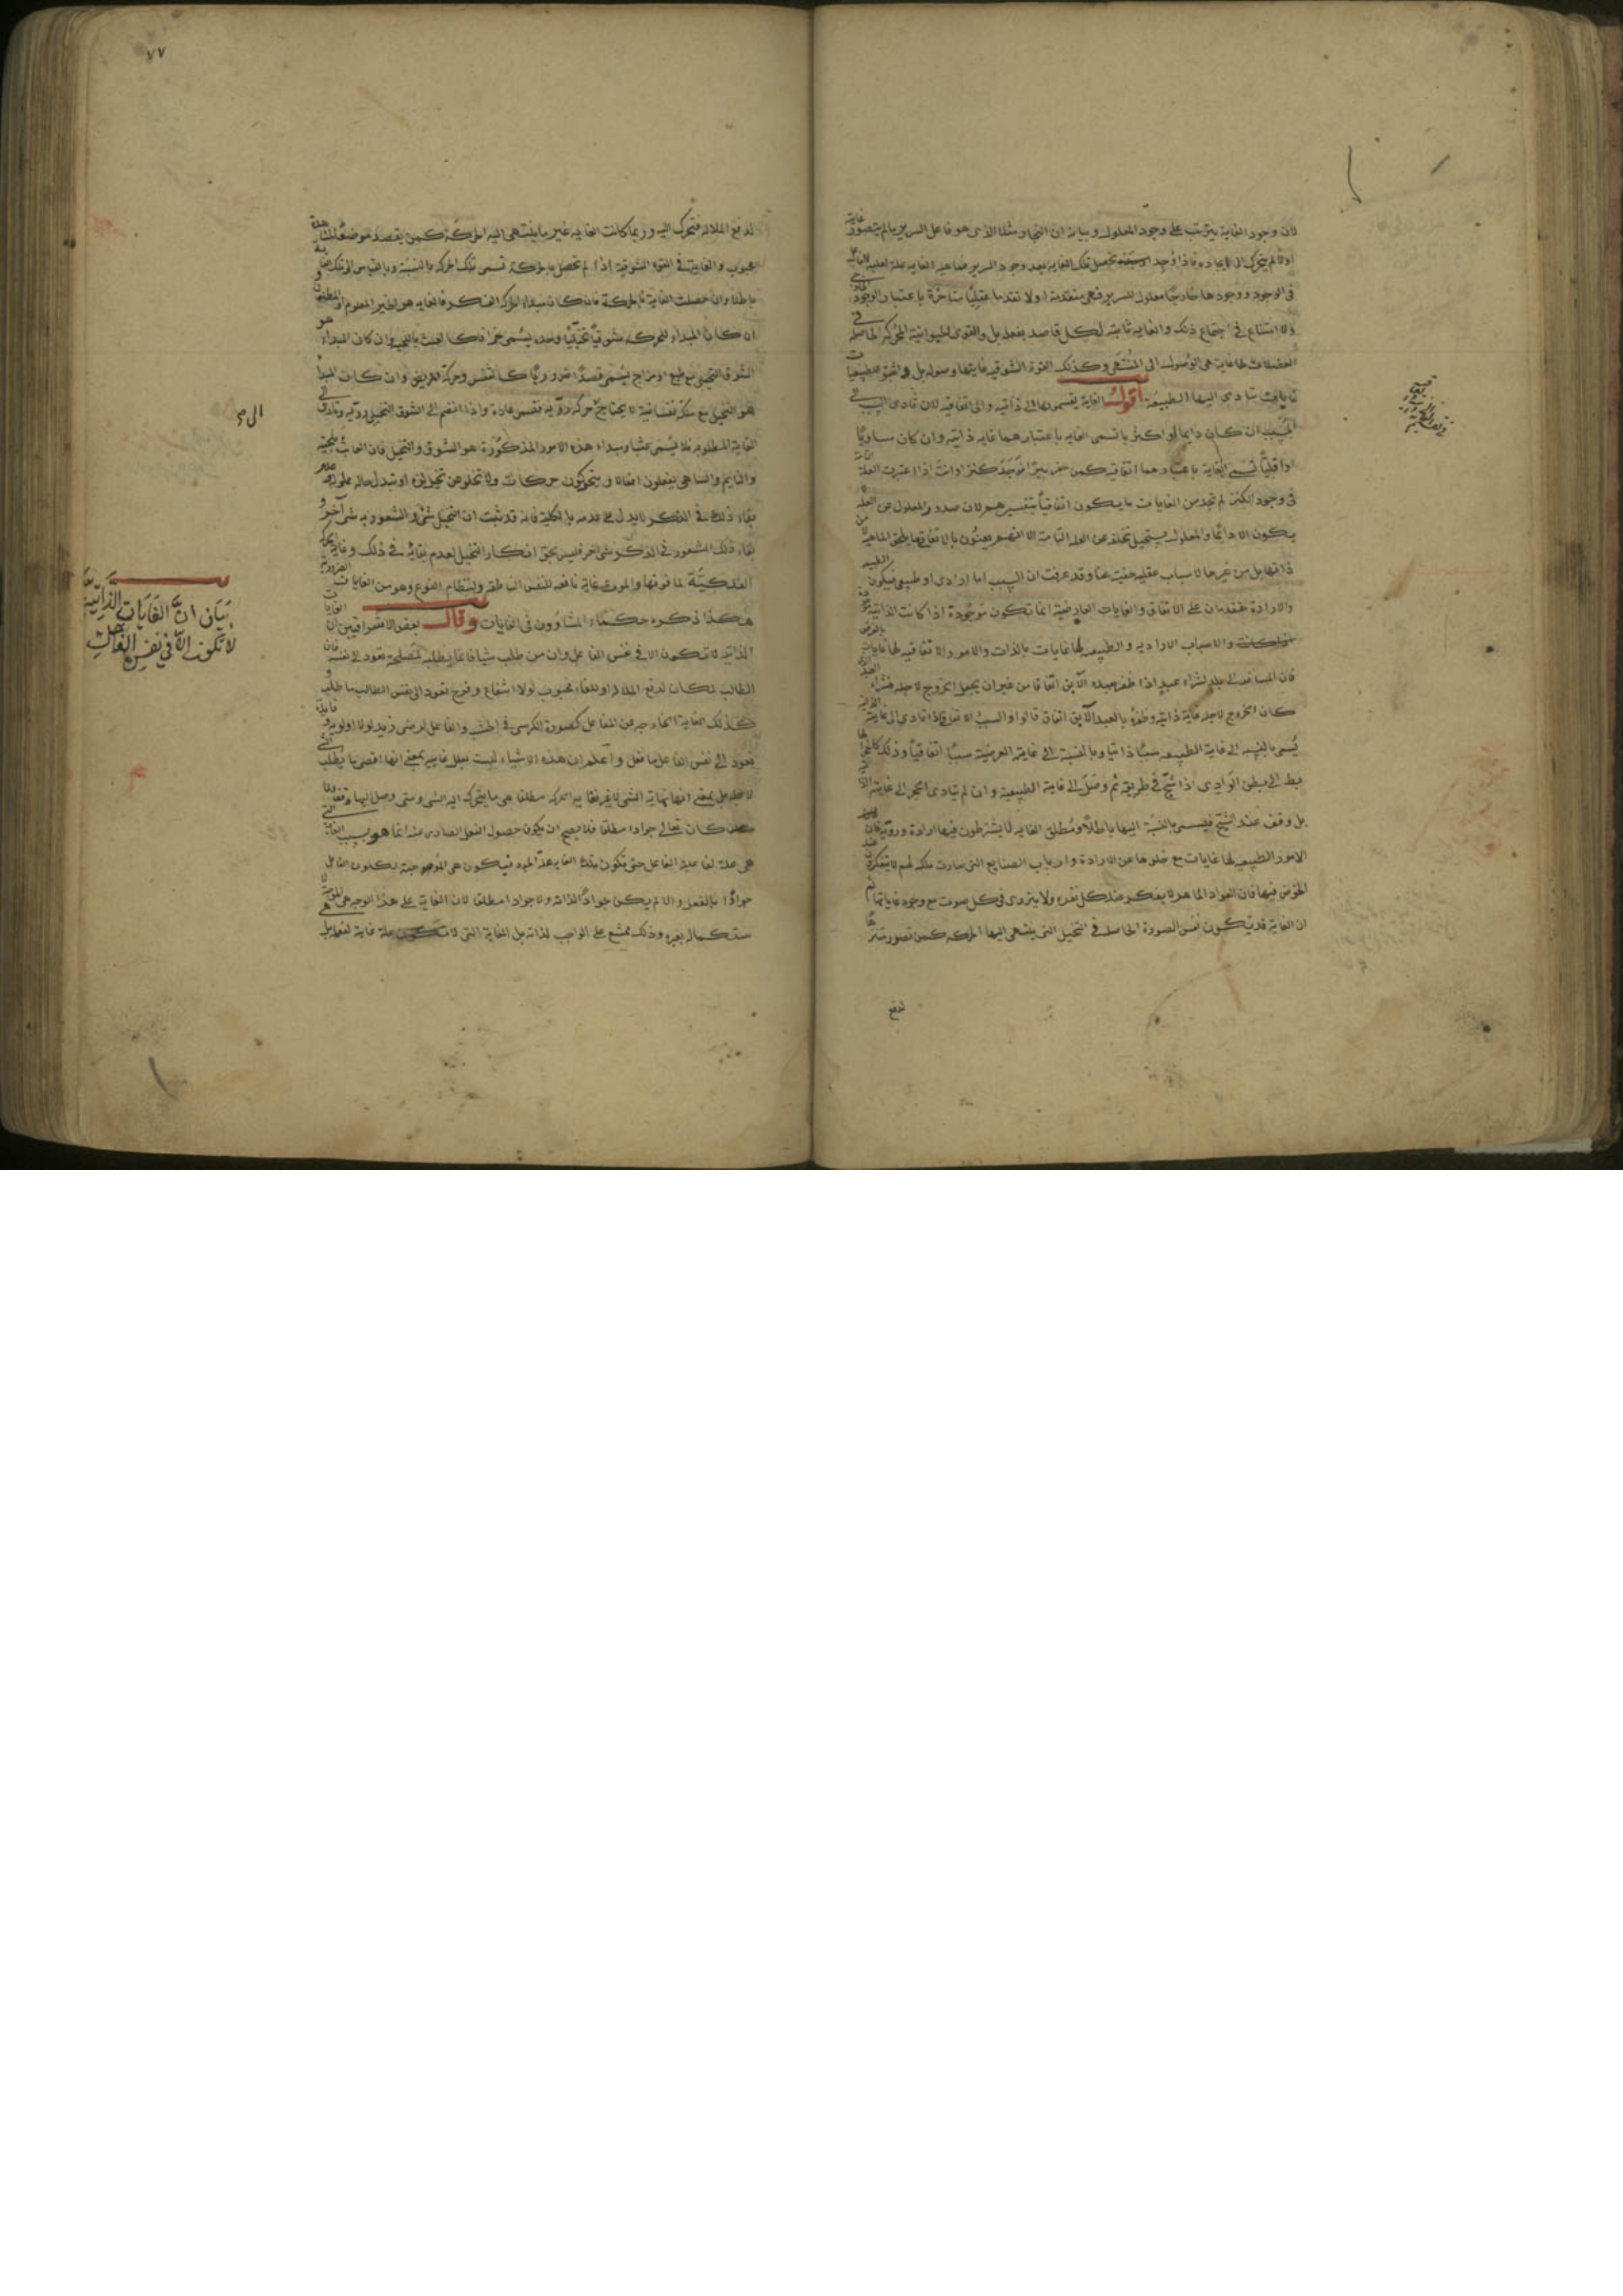 لان وجود الغاية يترتب على وجود المعلول وبيانه ان النجار مثلا الذى هو فاعل السرير ما لم يتصور غاية
اولا لم يتحرك الى ايجاده فاذا وجد السرير تحصل تلك الغاية بعد وجود السرير فماهية الغاية علة لعلية الفاعل
فى الوجود ووجودها خارجا معلول للسرير فهى متقدمة اولا تقدما عقليا متاخرة باعتبار الوجود
ولا امتناع فى اجتماع ذلك والغاية ثابتة لكل قاصد بفعله بل والقوى الحيوانية المحركة الحاصلة فى
العضلات لها غاية هى الوصول الى المنتهى وكذلك القوة الشوقية غايتها وصوله بل واثبتوا للطبيعيات
غايات تتادى اليها الطبيعة اقول الغاية يقسمونها الى ذاتية والى اتفاقية لان تادى السبب الى
المسبب ان كان دايما او اكثريا تسمى الغاية باعتبارهما غاية ذاتية وان كان مساويا
او اقليا تسمى الغاية باعتبارهما اتفاقية كمن حفر بيرا فوجد كنزا وانت اذا اعتبرت العلة التامة
فى وجود الكنز لم تجد من الغايات ما يكون اتفاقيا بتفسيرهم لان صدور المعلول عن العلة
يكون الا دائما والمعلول يستحيل تخلفه عن العلة التامة الا انهم يعنون بالاتفاق ما يلحق الماهية لا من
ذاتها بل من غيرها لاسباب عقلية خفيت عنا وقد عرفت ان السبب اما ارادى او طبيعى فيكون الطبيعة
والارادة متقدمان على الاتفاق والغايات العارضية انما تكون موجودة اذا كانت الذاتية موجودة
والاسباب الارادية والطبيعية لها غايات بالذات والامور الاتفاقية لها غايات بالعرض
فان المسافر الى بلد لشراء عبد اذا ظفر بعبده الآبق اتفاقا من غير ان يجعل الخروج لاجله فشراء العبد
كان الخروج لاجله غاية ذاتية وظفره بالعبد الآبق اتفاق قالوا والسبب الاتفاقى اذا تادى الى غايته الذاتية
يسمى بالنسبة الى غاية الطبيعية سببا ذاتيا وبالنسبة الى غايته العرضية سببا اتفاقيا وذلك كالحجر
هبط الى بطن الوادى اذا شج فى طريقه ثم وصل الى غايته الطبيعية وان لم يتادى الحجر الى غايته
بل وقف عند الشج فيسمى بالنسبة اليها باطلا ومطلق الغاية لا يشترطون فيها ارادة وروية فان
الامور الطبيعية لها غايات مع خلوها عن الارادة وارباب الصنايع التى صارت ملكة لهم لا يتفكرون عند
الخوض فيها فان العواد الماهر لا يفكر عند كل نقرة ولا يتروى فى كل صوت مع وجود غاياتها ثم
ان الغاية قد تكون نفس الصورة الحاصلة فى التخيل التى ينتهى اليها الحركة كمن تصور متنزها
لدفع
٧٧
لدفع الملالة فتحرك اليه وربما كانت الغاية غير ما ينتهى اليه الحركة كمن يقصد موضعا لمشاهدة
محبوب والغاية فى القوة الشوقية اذا لم تحصل بالحركة تسمى تلك الحركة بالنسبة وبالقياس الى تلك الغاية
باطلا وان حصلت الغاية بالحركة فان كان مبداء الحركة الفكر فالغاية هو الخير المعلوم او المظنون
ان كان المبداء للحركة شوقيا تخيليا وحده يسمى جزافا كالعبث باللحية وان كان المبداء هو
الشوق التخيلى مع طبع او مزاج يسمى قصدا ضروريا كالتنفس وحركة المريض وان كان المبدأ
هو التخيل مع ملكة نفسانية لا يحتاج حركة روية تسمى عادة واذا انضم الى الشوق التخيلى روية وتادى الى
الغاية المطلوبة فلا يسمى عبثا ومبداء هذه الامور المذكورة هو الشوق والتخيل فان العابث بلحيته
والنايم والساهى يفعلون افعالا ويتحركون حركات ولا تخلو عن تخيل لذة او تبدل حالة مملولة وعدم
بقاء ذلك فى الذكر لا يدل على عدمه بالكلية فانه قد ثبت ان التخيل شىء والشعور به شىء آخر و
بقاء ذلك الشعور فى الذكر شىء اخر فليس بحق انكار التخيل لعدم بقائه فى ذلك وغاية حركة
الفلكية لما فوقها والموت غاية نافعة للنفس الناطقة ولنظام النوع وهو من الغايات الضرورية
هكذا ذكره حكماء المشاوون فى الغايات وقال بعض الاشراقيين ان الغايات
الذاتية لا تكون الا فى نفس الفاعل وان من طلب شيا فانما يطلبه لمصلحة تعود الى نفسه فان
الطالب لمكان لدفع الملالة او للقاء محبوب لولا انتفاع وفرح تعود الى نفس الطالب ما طلب و
كذلك الغاية الخارجة عن الفاعل كصورة الكرسى فى الخشب والفاعل لرضى زيد لولا اولوية وفايدة
تعود الى نفس الفاعل ما فعل واعلم ان هذه الاشياء ليست بعلل غايية بمعنى انها اقصى ما يطلب الشىء
لاجله بل بمعنى انها نهاية الشىء
كان تعالى جوادا مطلقا فلا يصح ان يكون حصول الفعل الصادر عنه انما هو بسبب الغاية التى
هى علة لفاعلية الفاعل حتى تكون تلك الغاية علة الجود فيكون هى الموجبة لكون الفاعل
جوادا بالفعل والا لم يكن جوادا لذاته ولا جوادا مطلقا لان الغاية على هذا الوجه هى
مستكملة بغيره وذلك ممتنع على الواجب لذاته بل الغاية التى لا تكون علة غاية لفواعل
بيان ان الغايات الذاتية
لا تكون الا فى نفس الفاعل